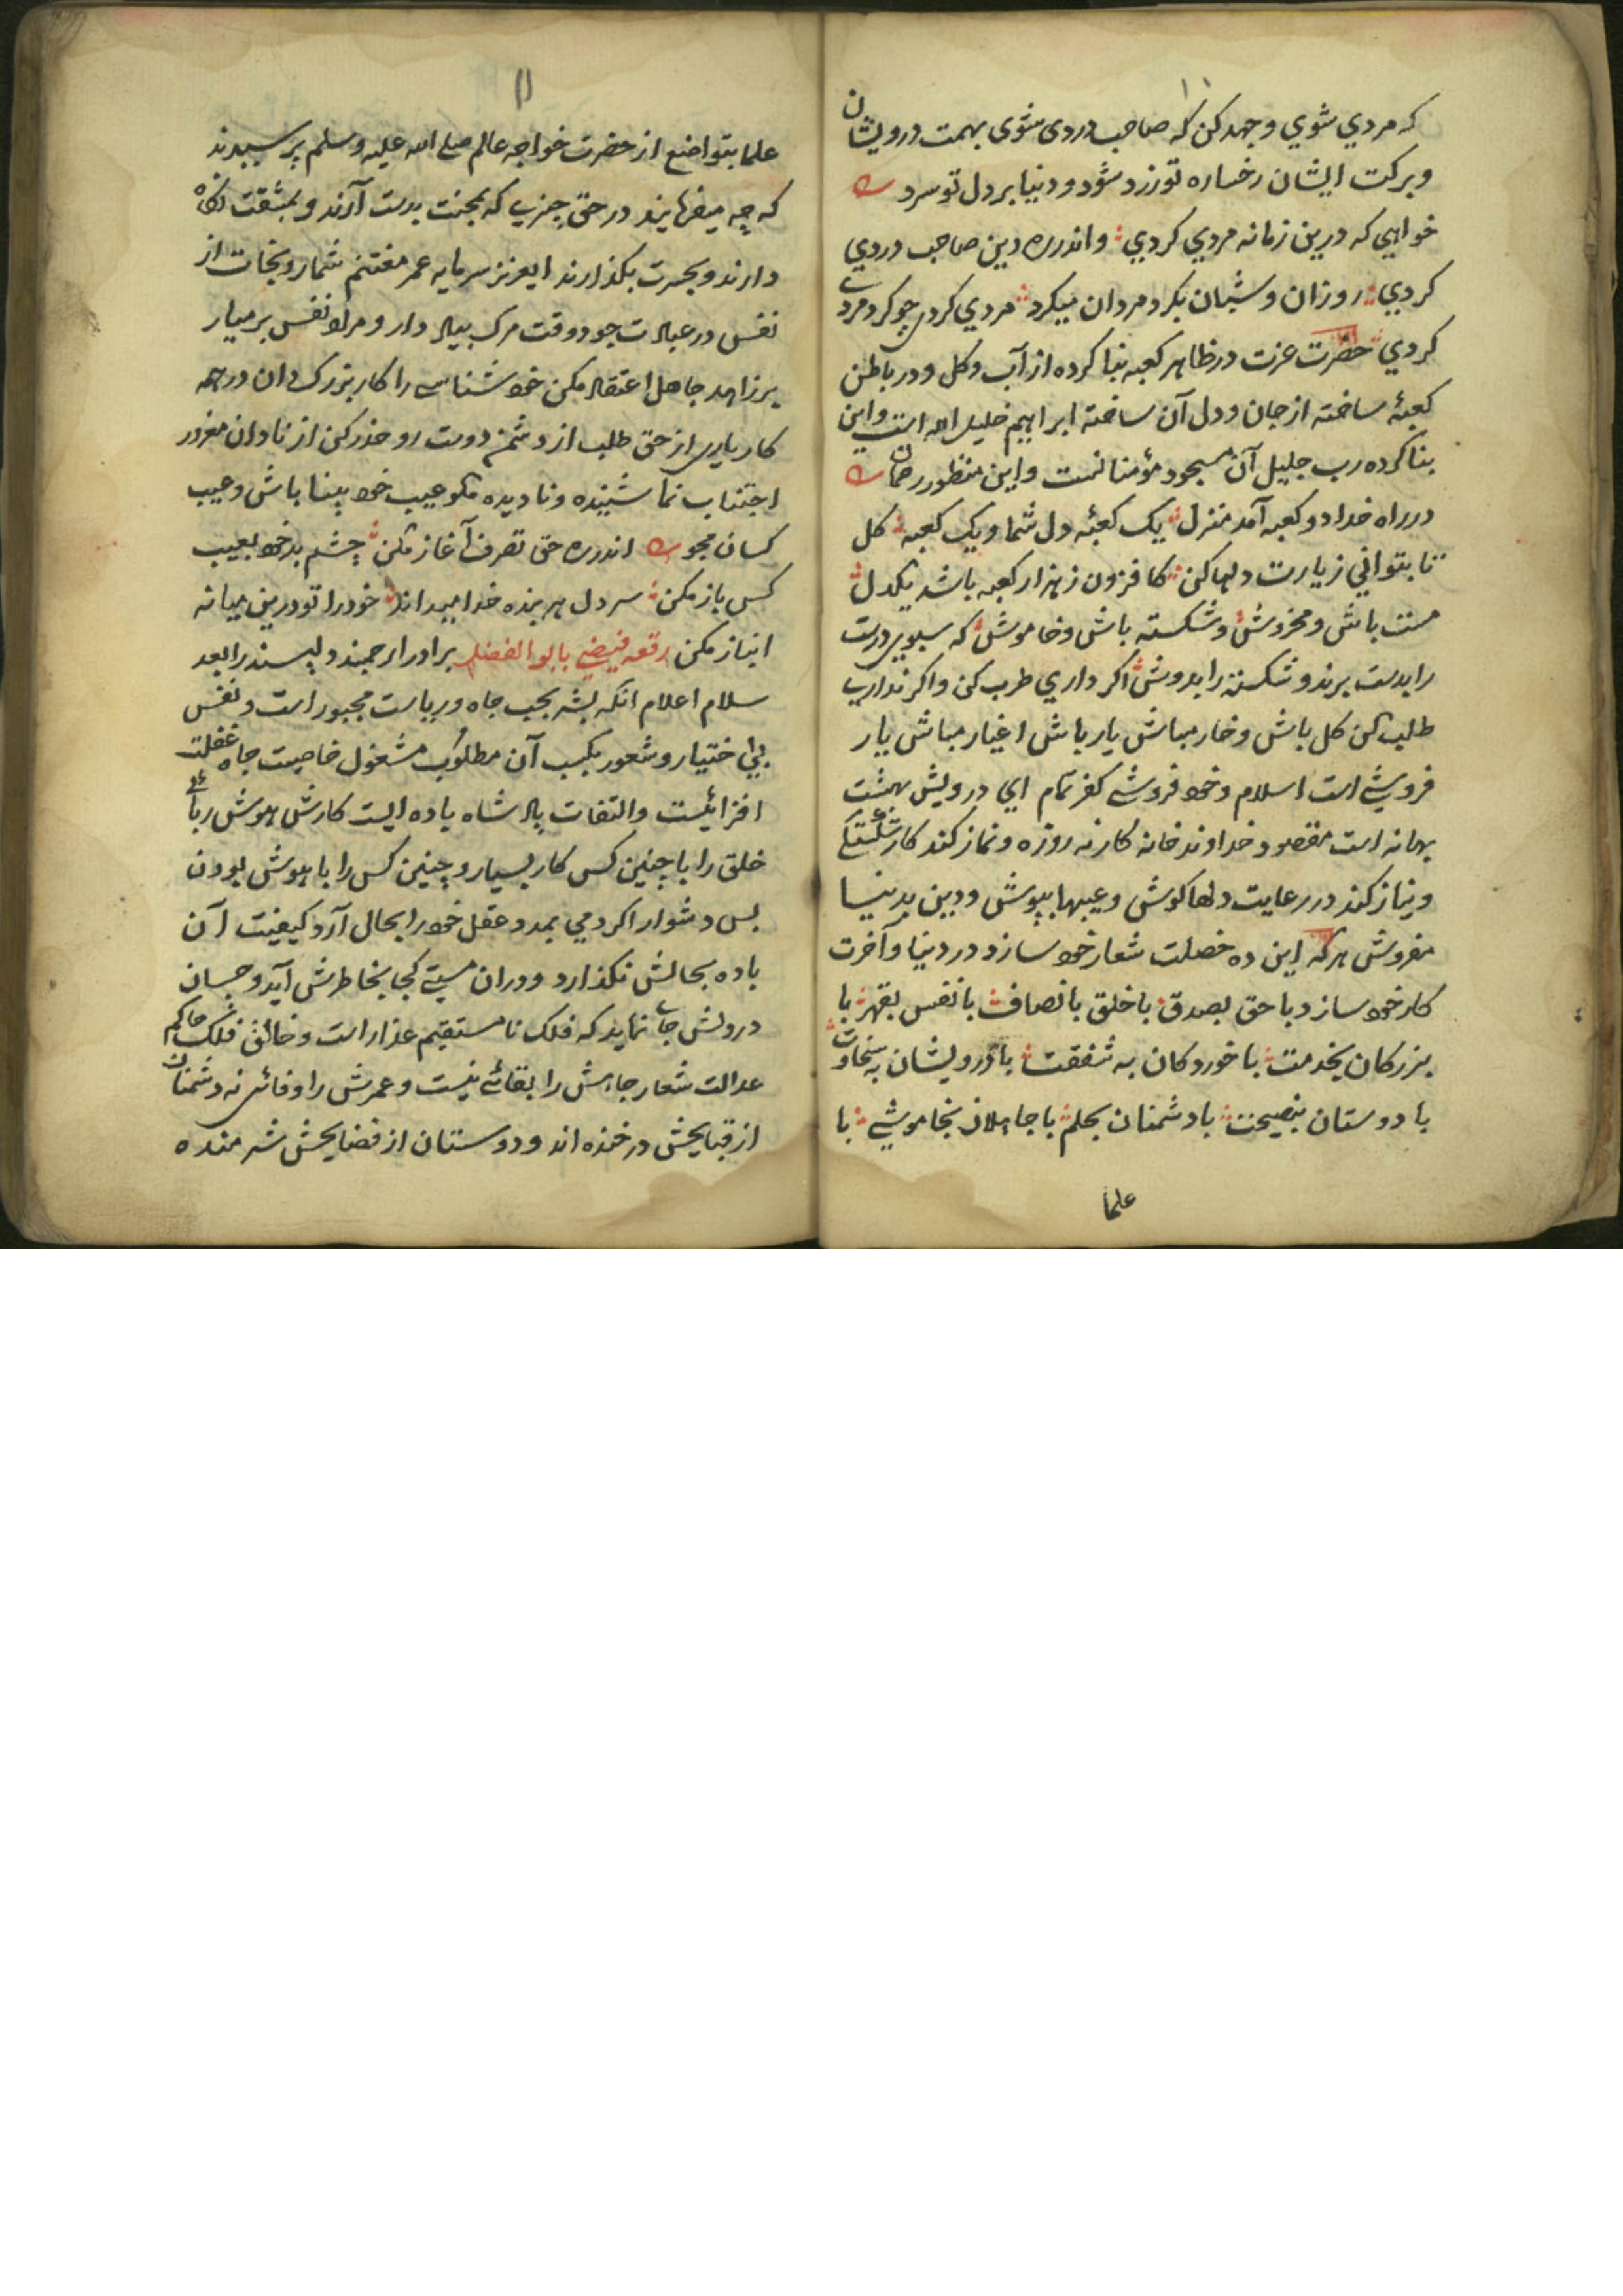 که مردي شوي و جهد کن که صاحب دردی شوی بهمت درویشان
و برکت ایشان رخساره تو زرد شود و دنیا بر دل تو سرد
خواهي که درین زمانه مردي کردي و اندر ره دین صاحب دردي
کردي روزان و شبان بکرد مردان میکرد مردي کردي چو کرد مردي
کردي حضرت عزت در ظاهر کعبه بنا کرده از آب و کل و در باطن
کعبۀ ساخته از جان و دل آن ساخته ابراهیم خلیل الله است و این
بنا کرده رب جلیل آن مسجود مؤمنانست و این منظور رحمان
در راه خدا دو کعبه آمد منزل یک کعبۀ دل شما و یک کعبه کل
تا بتواني زیارت دلها کن کافزون ز هزار کعبه باشد یکدل
مست باش و مخروش و شکسته باش و خاموش که سبوي درست
را بدست برند و شکسته را بدوش اکر داري طرب کن و اکر نداري
طلب کن کل باش و خار مباش یار باش اغیار مباش یار
فروشي است اسلام و خود فروشي کفر تمام اي درویش بهشت
بهانه است مقصود خداوند خانه کار نه روزه و نماز کند کار شکستکي
و نیاز کند در رعایت دلها کوش و عیبها بپوش و دین بدنیا
مفروش هرکه این ده خصلت شعار خود سازد در دنیا و آخرت
کار خود سازد با حق بصدق با خلق بانصاف با نفس بقهر با
بزرکان بخدمت با خوردکان به شفقت با درویشان به سخاوت
با دوستان بنصیحت با دشمنان بحلم با جاهلان بخاموشي با
علما
۱۱
علما بتواضع از حضرت خواجه عالم صلے الله علیه وسلم پرسیدند
که چه میفرمایند در حق چیزي که بمحنت بدست آرند و بمشقت نکاه
دارند و بحسرت بکذارند ایعزیز سرمایه عمر مغتنم شمار و نجات از
نفس در عبادت جو و وقت مرک بیاد دار و مراد نفس بر میار
بر زاهد جاهل اعتقاد مکن خود شناسي را کار بزرک دان در همه
کار یاري از حق طلب از دشمن دوست رو حذر کن از نادان مغرور
اجتناب نما شنیده و نادیده مکو عیب خود بینا باش و عیب
کسان مجو اندر ره حق تصرف آغاز مکن چشم بد خود بعیب
کس باز مکن سر دل هر بنده خدا میداند خود را تو درین میانه
انباز مکن رقعه فیضي بابو الفضل برادر ارجمند دلپسند را بعد
سلام اعلام انکه بشر بحب جاه و ریاست مجبور است و نفس
بي اختیار و شعور بکسب آن مطلوب مشغول خاصیت جاه غفلت
افزائیست و التفات پادشاه باده ایست کارش هوش ربائي
خلق را با چنین کس کار بسیار و چنین کس را با هوش بودن
بس دشوار اکر دمي بمدد عقل خود را بحال آرد کیفیت آن
باده بحالش نکذارد و دران مستي کجا بخاطرش آید و چسان
در دلش جاي نماید که فلک نا مستقیم غدار است و خالق فلک حاکم
عدالت شعار جاهش را بقائے نیست و عمرش را وفائی نه دشمنان
از قبایحش در خنده اند و دوستان از فضایحش شرمنده